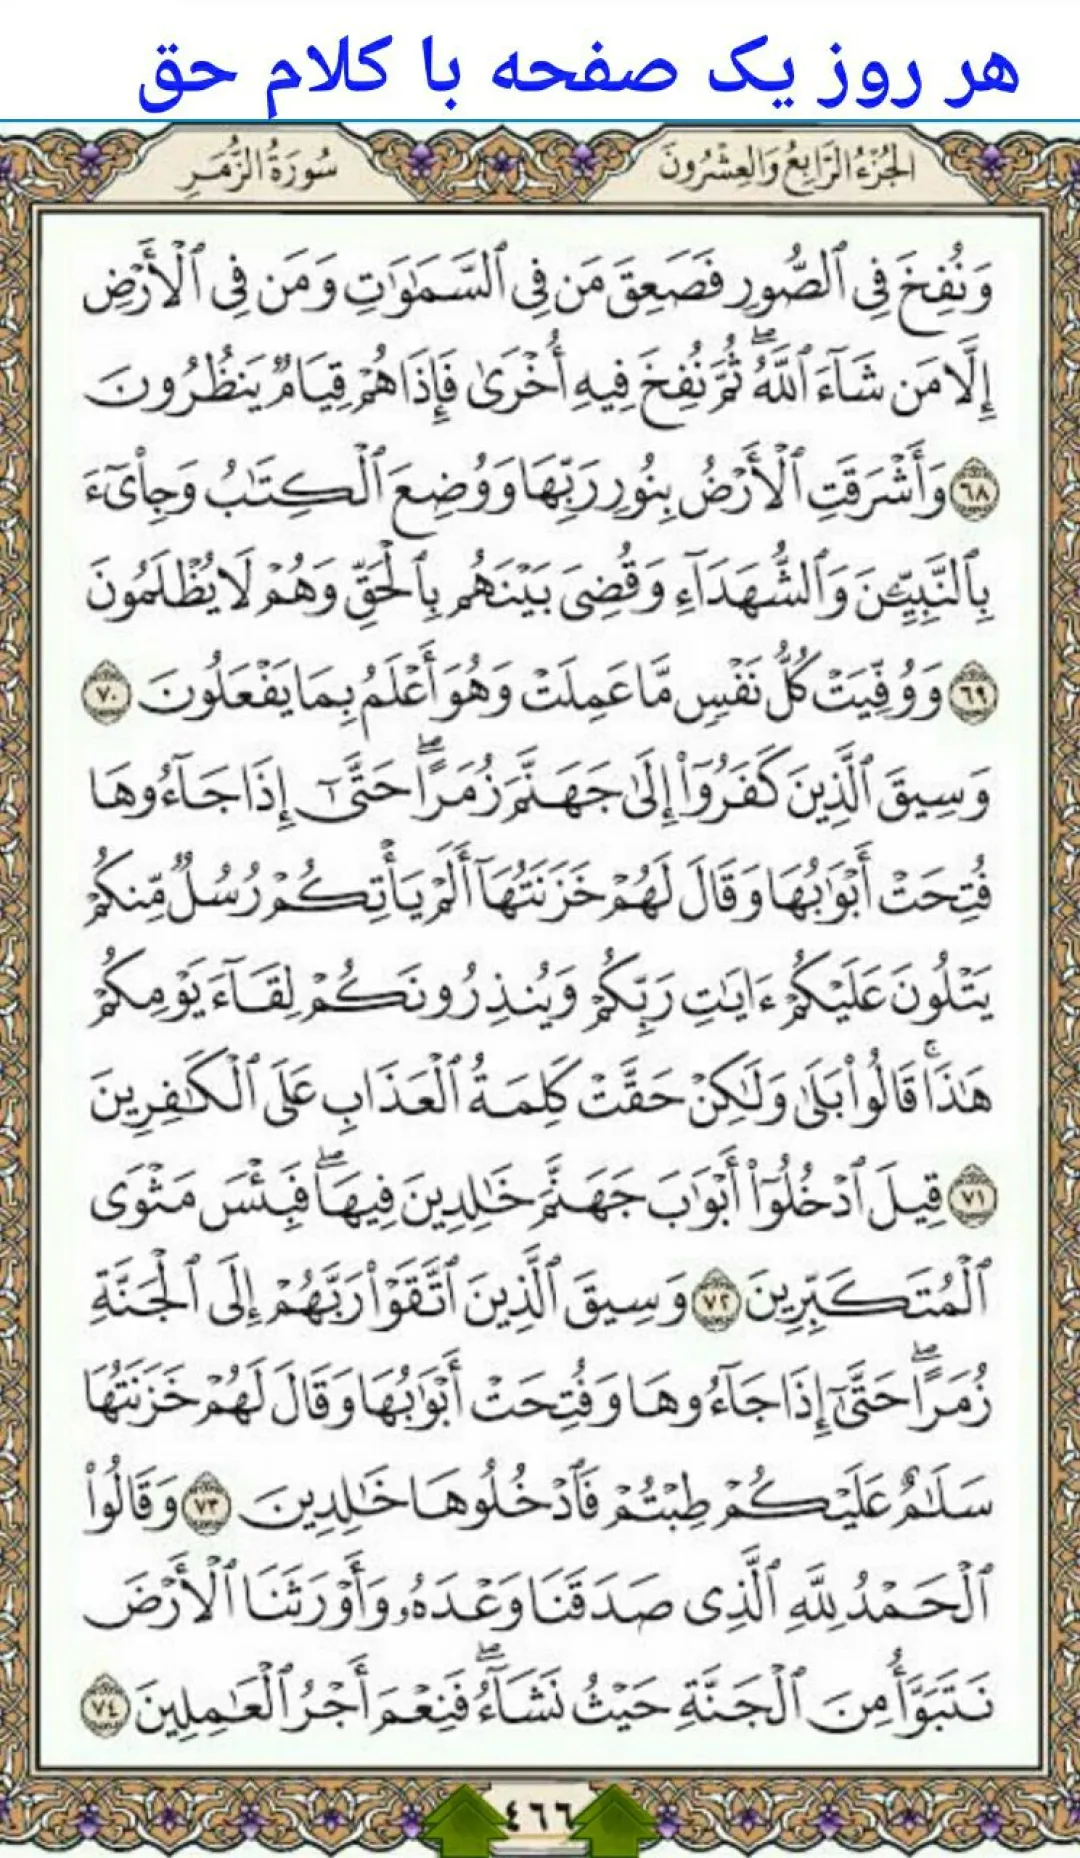 هر روز یک صفحه با کلام حق
الجُزْءُ الرَّابِعُ وَالعِشْرُونَ
سُورَةُ الزُّمَرِ
وَنُفِخَ فِى ٱلصُّورِ فَصَعِقَ مَن فِى ٱلسَّمَٰوَٰتِ وَمَن فِى ٱلْأَرْضِ
إِلَّا مَن شَآءَ ٱللَّهُۖ ثُمَّ نُفِخَ فِيهِ أُخْرَىٰ فَإِذَا هُمْ قِيَامٌ يَنظُرُونَ
٦٨ وَأَشْرَقَتِ ٱلْأَرْضُ بِنُورِ رَبِّهَا وَوُضِعَ ٱلْكِتَٰبُ وَجِا۟ىٓءَ
بِٱلنَّبِيِّۦنَ وَٱلشُّهَدَآءِ وَقُضِىَ بَيْنَهُم بِٱلْحَقِّ وَهُمْ لَا يُظْلَمُونَ
٦٩ وَوُفِّيَتْ كُلُّ نَفْسٍ مَّا عَمِلَتْ وَهُوَ أَعْلَمُ بِمَا يَفْعَلُونَ ٧٠
وَسِيقَ ٱلَّذِينَ كَفَرُوٓا۟ إِلَىٰ جَهَنَّمَ زُمَرًاۖ حَتَّىٰٓ إِذَا جَآءُوهَا
فُتِحَتْ أَبْوَٰبُهَا وَقَالَ لَهُمْ خَزَنَتُهَآ أَلَمْ يَأْتِكُمْ رُسُلٌ مِّنكُمْ
يَتْلُونَ عَلَيْكُمْ ءَايَٰتِ رَبِّكُمْ وَيُنذِرُونَكُمْ لِقَآءَ يَوْمِكُمْ
هَٰذَاۚ قَالُوا۟ بَلَىٰ وَلَٰكِنْ حَقَّتْ كَلِمَةُ ٱلْعَذَابِ عَلَى ٱلْكَٰفِرِينَ
٧١ قِيلَ ٱدْخُلُوٓا۟ أَبْوَٰبَ جَهَنَّمَ خَٰلِدِينَ فِيهَاۖ فَبِئْسَ مَثْوَى
ٱلْمُتَكَبِّرِينَ ٧٢ وَسِيقَ ٱلَّذِينَ ٱتَّقَوْا۟ رَبَّهُمْ إِلَى ٱلْجَنَّةِ
زُمَرًاۖ حَتَّىٰٓ إِذَا جَآءُوهَا وَفُتِحَتْ أَبْوَٰبُهَا وَقَالَ لَهُمْ خَزَنَتُهَا
سَلَٰمٌ عَلَيْكُمْ طِبْتُمْ فَٱدْخُلُوهَا خَٰلِدِينَ ٧٣ وَقَالُوا۟
ٱلْحَمْدُ لِلَّهِ ٱلَّذِى صَدَقَنَا وَعْدَهُۥ وَأَوْرَثَنَا ٱلْأَرْضَ
نَتَبَوَّأُ مِنَ ٱلْجَنَّةِ حَيْثُ نَشَآءُۖ فَنِعْمَ أَجْرُ ٱلْعَٰمِلِينَ ٧٤
٤٦٦